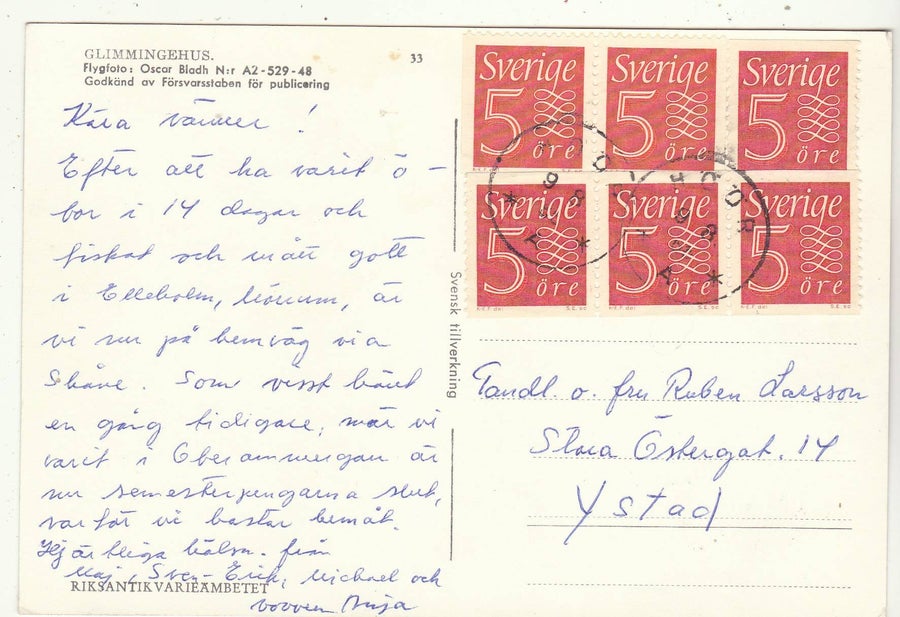 GLIMMINGEHUS.
33
Flygfoto: Oscar Bladh N:r A2-529-48
Godkänd av Försvarsstaben för publicering
Kära vänner!
Efter att ha varit ö-
bor i 14 dagar och
fiskat och mått gott
i Elleholm, Mörrum, är
vi nu på hemväg via
Skåne. Som visst hänt
en gång tidigare, när vi
varit i Oberammergau är
nu semesterpengarna slut,
varför vi hastar hemåt.
Hjärtliga hälsn. från
Maj, Sven-Erik, Michael och
vovven
RIKSANTIKVARIEÄMBETET
Svensk tillverkning
Sverige 5 öre
Sverige 5 öre
Sverige 5 öre
Sverige 5 öre
Sverige 5 öre
Sverige 5 öre
HÖÖR
Tandl. o. fru Ruben Larsson
Stora Östergat. 14
Ystad